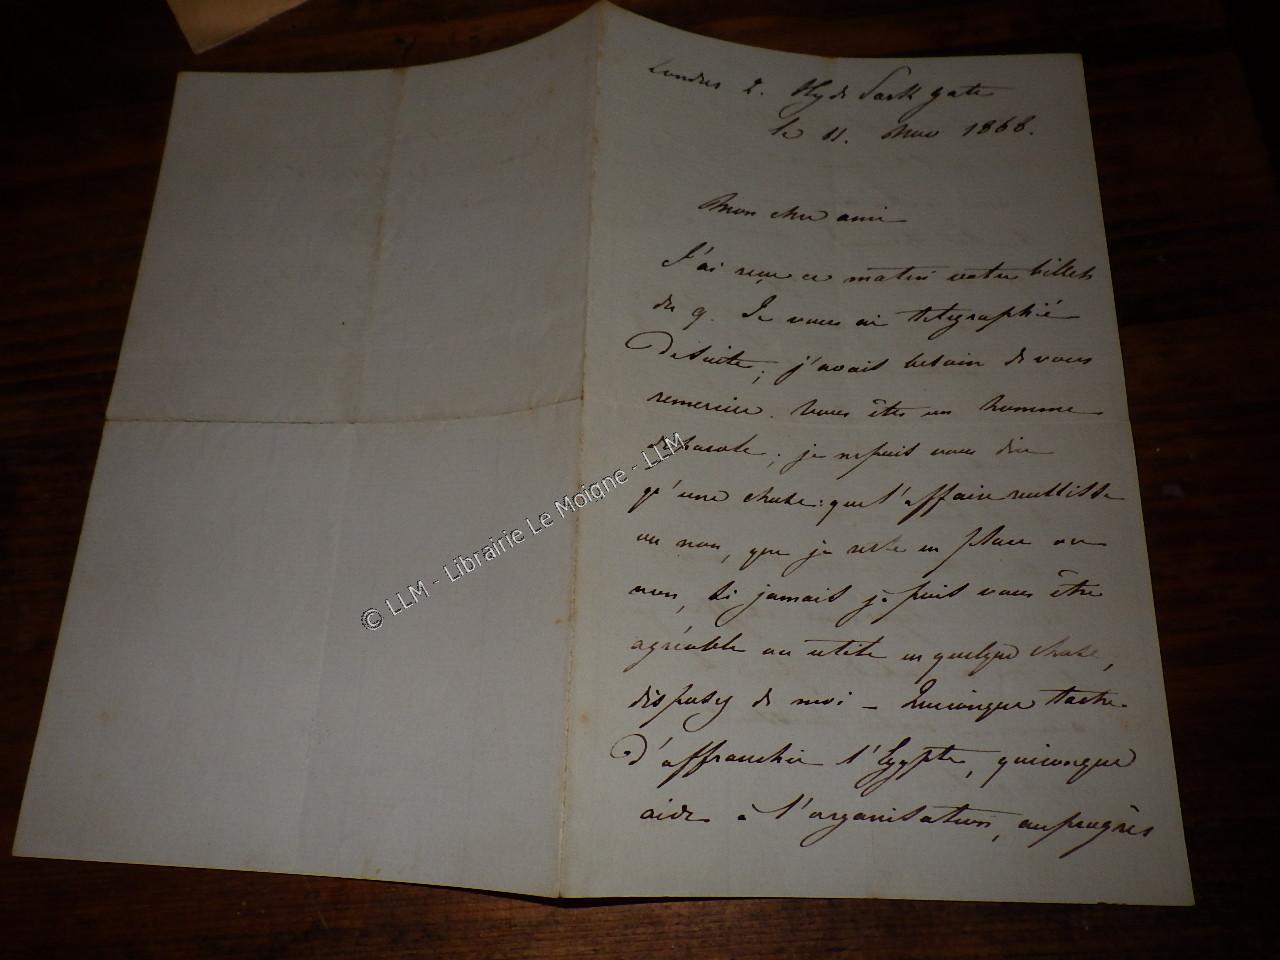 Londres 2. Hyde Park gate
le 11. Nov 1868.
Mon cher ami
J'ai reçu ce matin votre billet
du 9. Je vous ai télégraphié
de suite, j'avais besoin de vous
remercier. Vous êtes un homme
de parole, je ne puis vous dire
qu'une chose: que l'affaire reussisse
ou non, que je reste en place ou
non, si jamais je puis vous être
agréable ou utile en quelque chose,
disposez de moi – Quiconque tache
d'affranchir l'Egypte, quiconque
aide à l'organisation, au progrès
© LLM - Librairie Le Moigne - LLM